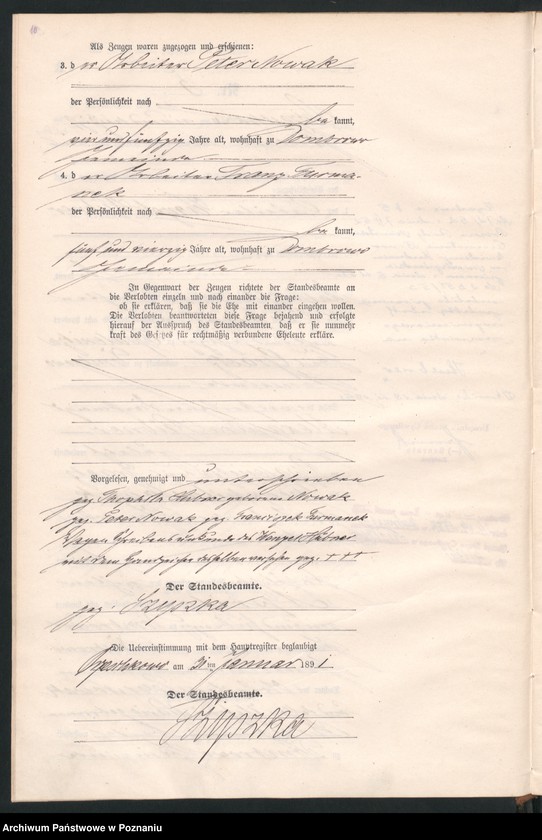 Als Zeugen waren zugezogen und erschienen:
3. der Arbeiter Peter Nowak
der Persönlichkeit nach
bekannt,
vier und fünfzig Jahre alt, wohnhaft zu Dombrowo
Gemeinde
4. der Arbeiter Franz Furma-
nek
der Persönlichkeit nach
bekannt,
fünf und vierzig Jahre alt, wohnhaft zu Dombrowo
Gemeinde
In Gegenwart der Zeugen richtete der Standesbeamte an
die Verlobten einzeln und nach einander die Frage:
ob sie erklären, daß sie die Ehe mit einander eingehen wollen.
Die Verlobten beantworteten diese Frage bejahend und erfolgte
hierauf der Ausspruch des Standesbeamten, daß er sie nunmehr
kraft des Gesetzes für rechtmäßig verbundene Eheleute erkläre.
Vorgelesen, genehmigt und unterschrieben
gez. Hübner geborene Nowak
gez. Peter Nowak gez. Franciszek Furmanek
Wegen Schreibensunkunde des Hübner
mit dem Handzeichen desselben versehen gez. + + +
Der Standesbeamte.
gez. Szypszka
Die Uebereinstimmung mit dem Hauptregister beglaubigt
am 31ten Januar 1891
Der Standesbeamte.
Szypszka
Archiwum Państwowe w Poznaniu